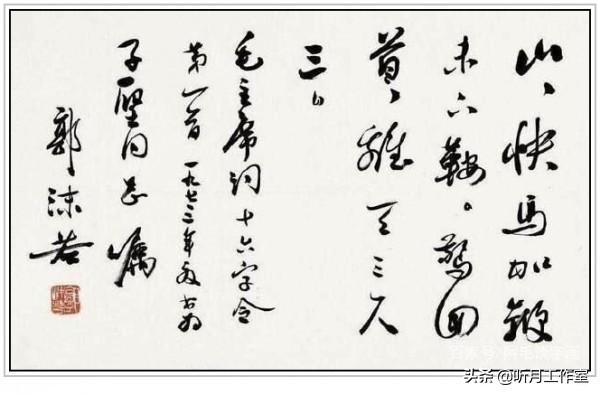 山、快馬加鞭
未下鞍。驚回
首、離天三尺
三。
毛主席词十六字令
第一首 一九七年书为
子堅同志嘱
郭沫若
头条 @听月工作室